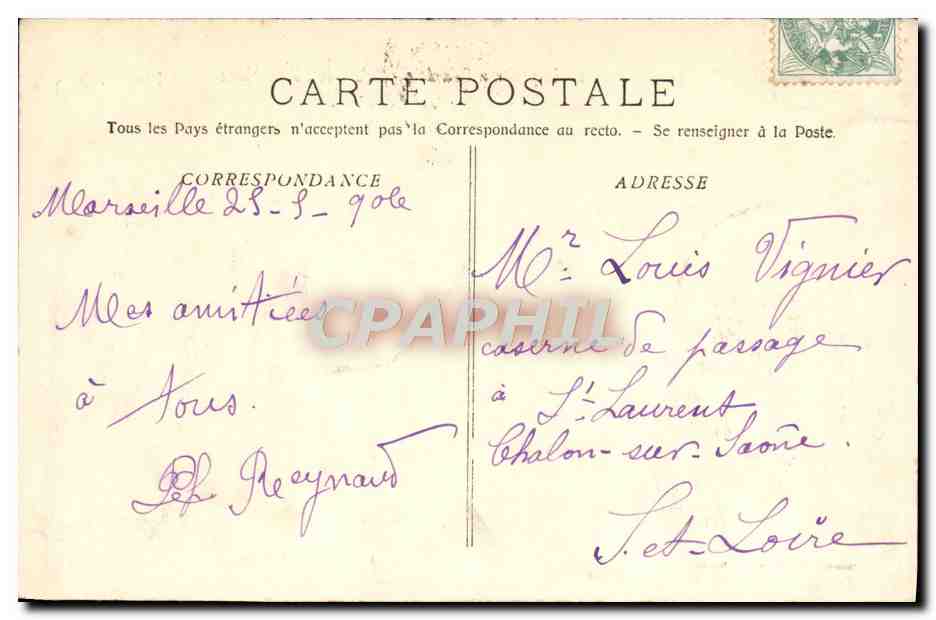 CARTE POSTALE
Tous les Pays étrangers n'acceptent pas la Correspondance au recto. – Se renseigner à la Poste.
CORRESPONDANCE
Marseille 25-5-
Mes amitiées
à tous.
Reynaud
ADRESSE
Mr. Louis Vignier
caserne de passage
à St. Laurent
Chalon-sur-Saône.
S. et-Loire
CPAPHIL